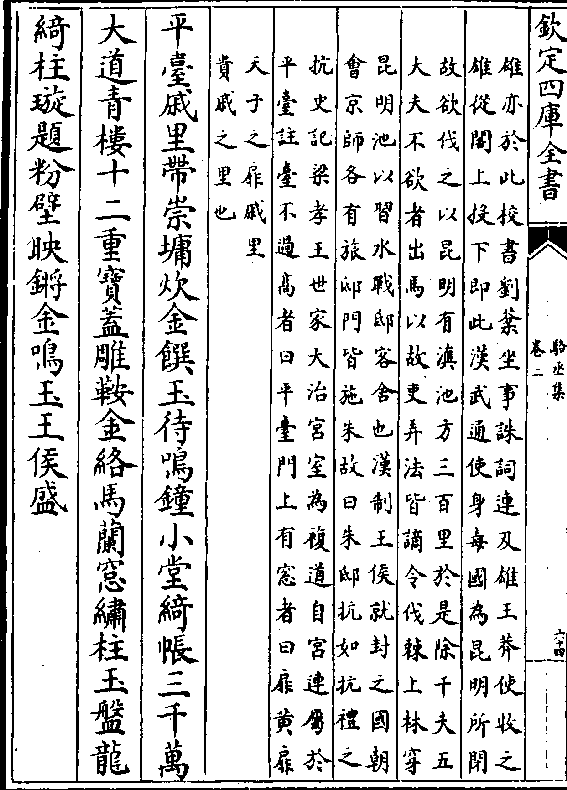 欽定四庫全書
駱丞集
卷二
六四
雄亦於此校書劉棻坐事誅詞連及雄王莽使收之
雄從閣上投下即此漢武通使身毒國為昆明所閉
故欲伐之以昆明有滇池方三百里於是除千夫五
大夫不欲者出馬以故吏弄法皆謫令伐棘上林穿
昆明池以習水戰邸客舍也漢制王侯就封之國朝
會京師各有旅邸門皆施朱故曰朱邸抗如抗禮之
抗史記梁孝王世家大治宮室為複道自宮連屬於
平臺註臺不過高者曰平臺門上有窓者曰扉黄扉
天子之扉戚里
貴戚之里也
平臺戚里帶崇墉炊金饌玉待鳴鐘小堂綺帳三千萬
大道青樓十二重寶蓋雕鞍金絡馬蘭窓繡柱玉盤龍
綺柱璇題粉壁映鏘金鳴玉王侯盛